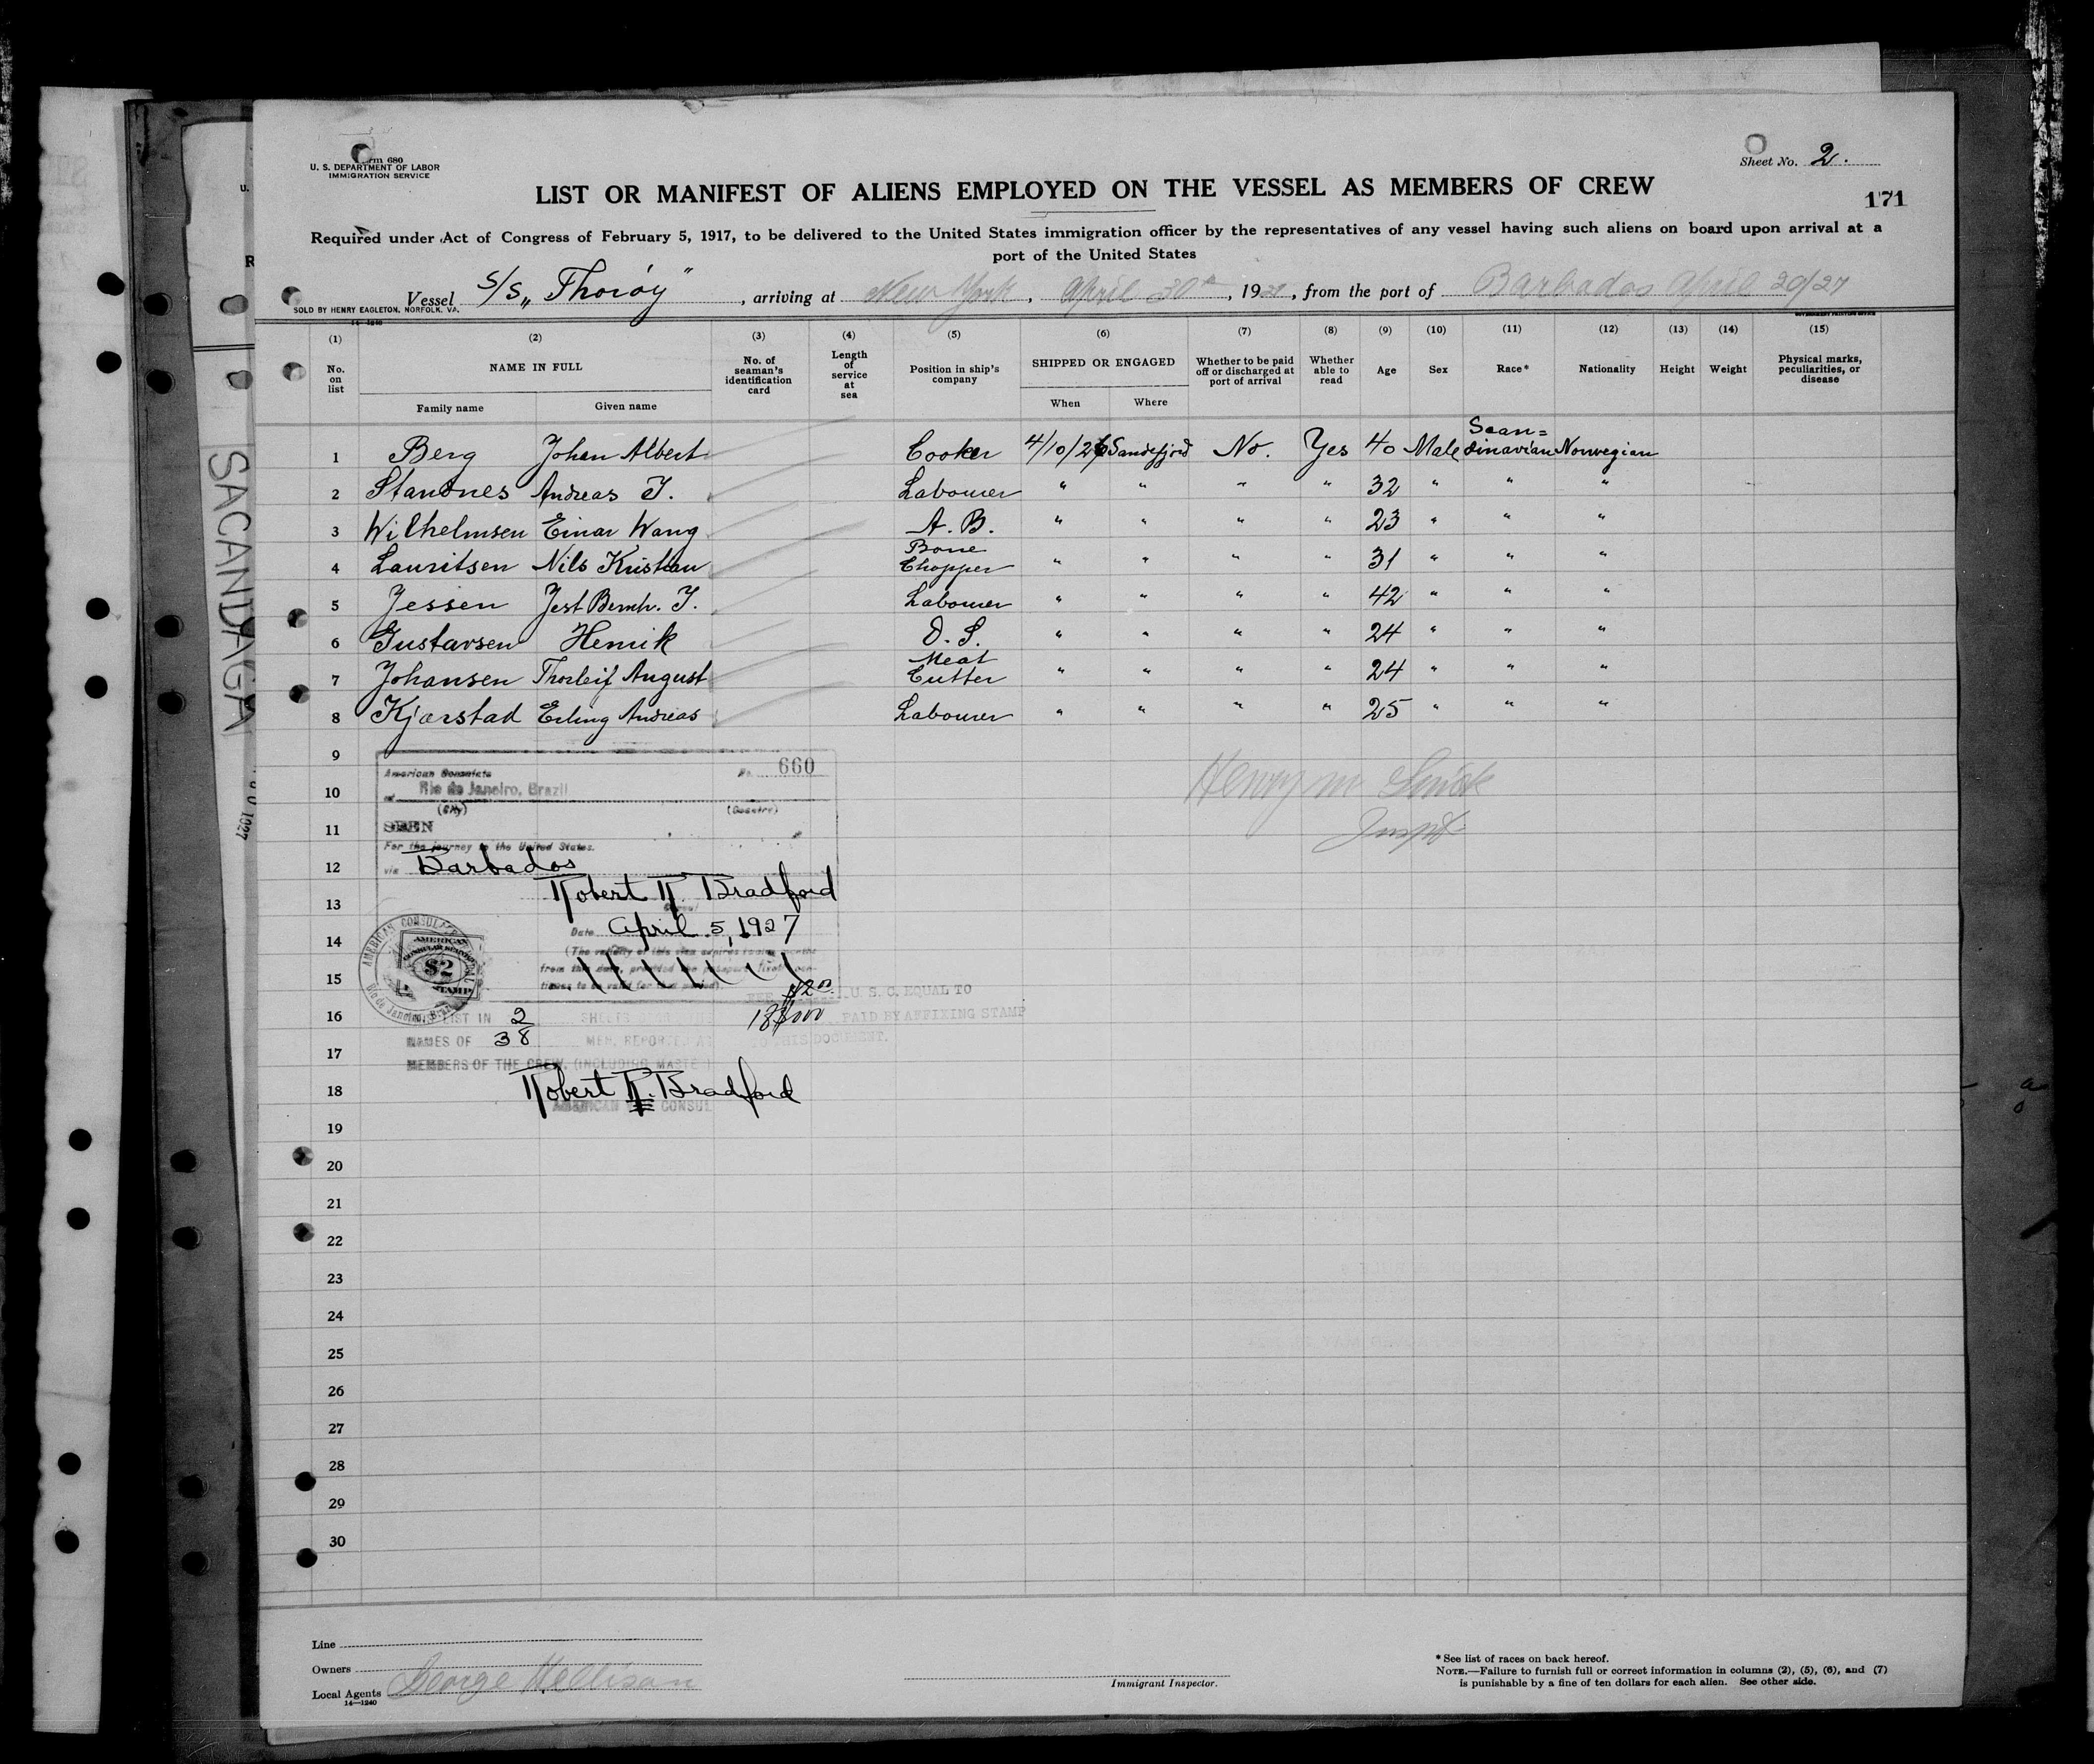 Form 680
U. S. DEPARTMENT OF LABOR
IMMIGRATION SERVICE
Sheet No. 2.
LIST OR MANIFEST OF ALIENS EMPLOYED ON THE VESSEL AS MEMBERS OF CREW
171
Required under Act of Congress of February 5, 1917, to be delivered to the United States immigration officer by the representatives of any vessel having such aliens on board upon arrival at a
port of the United States
Vessel S/S „Thorøy", arriving at New York, April 30th, 1927, from the port of Barbados April 20/27
SOLD BY HENRY EAGLETON, NORFOLK, VA.
14—1240
GOVERNMENT PRINTING OFFICE
(1) (2) (3) (4) (5) (6) (7) (8) (9) (10) (11) (12) (13) (14) (15)
No. on list
NAME IN FULL
Family name
Given name
No. of seaman's identification card
Length of service at sea
Position in ship's company
SHIPPED OR ENGAGED
When
Where
Whether to be paid off or discharged at port of arrival
Whether able to read
Age
Sex
Race*
Nationality
Height
Weight
Physical marks, peculiarities, or disease
1 Berg Johan Albert Cooker 4/10/26 Sandefjord No. Yes 40 Male Scan=dinavian Norwegian
2 Standnes Andreas J. Labourer " " " " 32 " " "
3 Wilhelmsen Einar Wang A. B. " " " " 23 " " "
4 Lauritsen Nils Kristian Bone Chopper " " " " 31 " " "
5 Jessen Jest Bernh. J. Labourer " " " " 42 " " "
6 Gustavsen Henrik O. S. " " " " 24 " " "
7 Johansen Thorleif August Meat Cutter " " " " 24 " " "
8 Kjærstad Erling Andreas Labourer " " " " 25 " " "
9
10
11
12
13
14
15
16
17
18
19
20
21
22
23
24
25
26
27
28
29
30
American Consulate No. 660
at Rio de Janeiro, Brazil
(City) (Country)
SEEN
For the journey to the United States.
via Barbados
Robert R. Bradford
Date April 5, 1927
(The validity of this visa expires twelve months
from this date, provided the passport
AMERICAN CONSULAR SERVICE
$2
STAMP
Rio de Janeiro, Brazil
$2.00 U. S. C. EQUAL TO
PAID BY AFFIXING STAMP
TO THIS DOCUMENT.
LIST IN 2 SHEETS
NAMES OF 38 MEN, REPORTED AS
MEMBERS OF THE CREW. (INCLUDING MASTER)
Robert R. Bradford
AMERICAN VICE CONSUL
Henry M
SACANDAGA
1927
Line
Owners
Local Agents George
14—1240
Immigrant Inspector.
* See list of races on back hereof.
NOTE.—Failure to furnish full or correct information in columns (2), (5), (6), and (7)
is punishable by a fine of ten dollars for each alien. See other side.